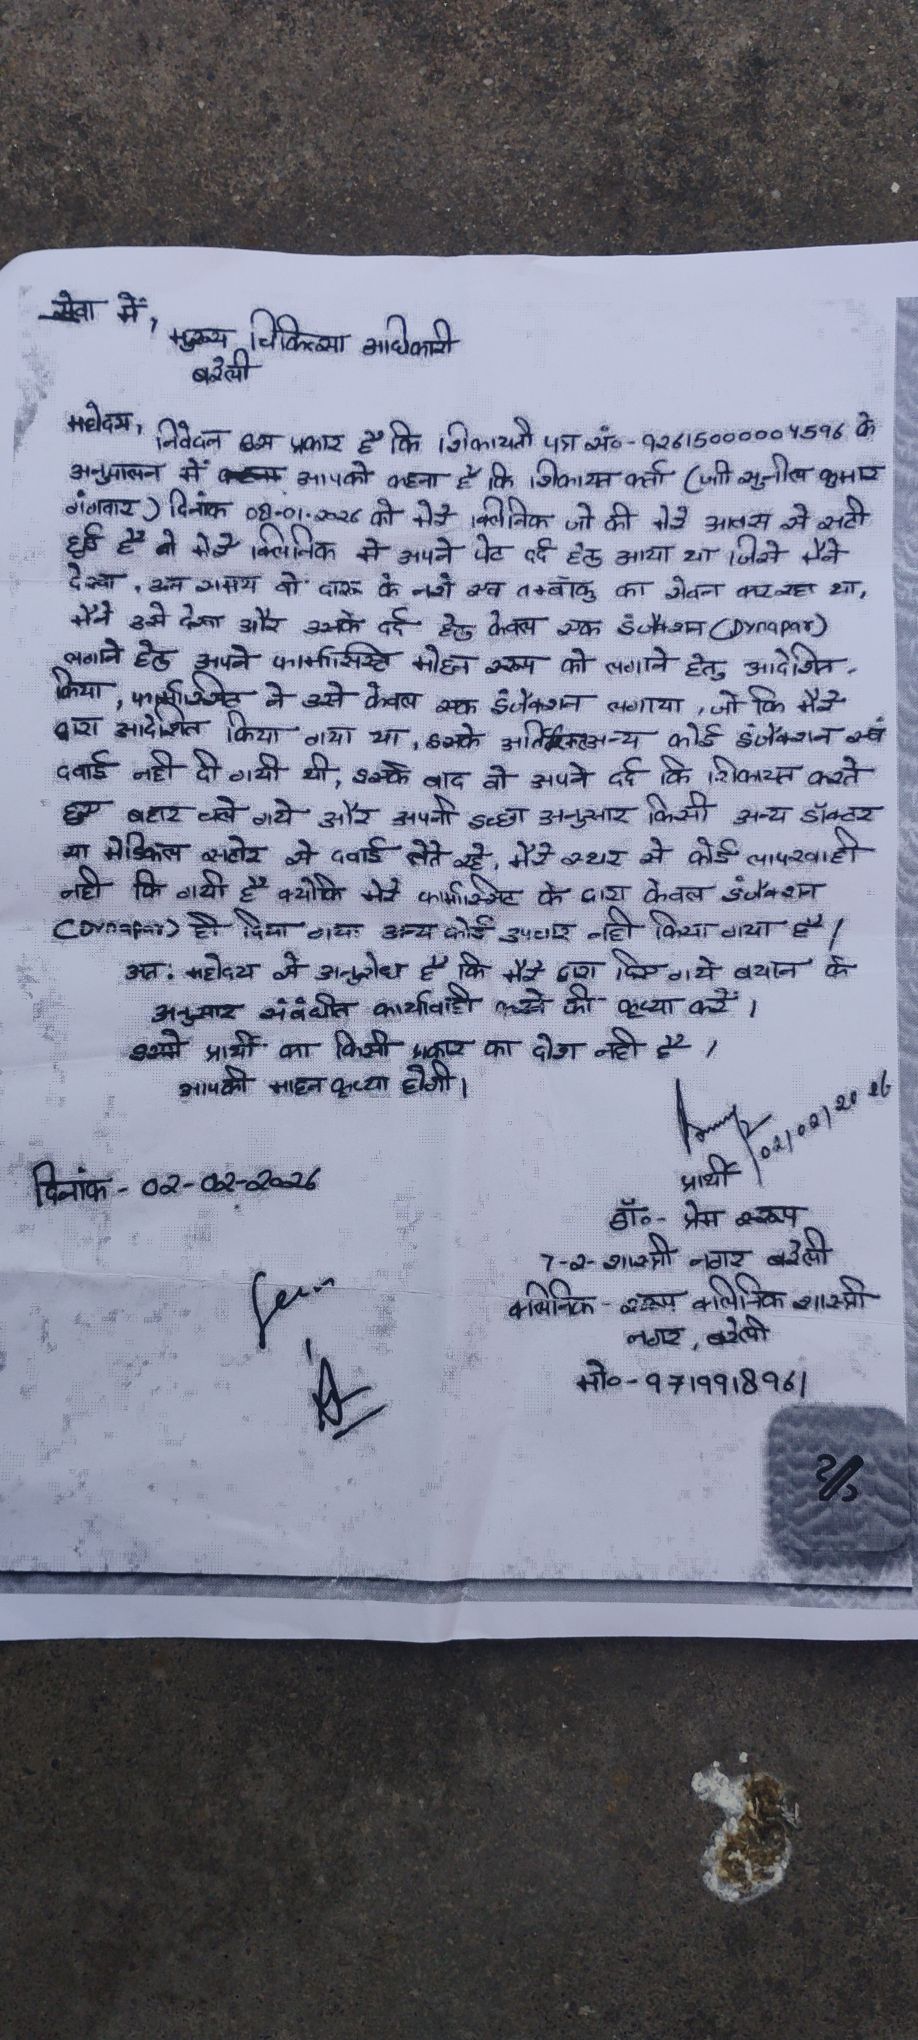 सेवा में,
मुख्य चिकित्सा अधिकारी
बरेली
महोदय,
निवेदन इस प्रकार है कि शिकायती पत्र सं०-92615000004596 के
अनुपालन में आपको कहना है कि शिकायत कर्ता (श्री सुनील कुमार
गंगवार) दिनांक 08-01-2026 को मेरे क्लिनिक जो की मेरे आवास से सटी
हुई है वो मेरे क्लिनिक में अपने पेट दर्द हेतु आया था जिसे मैंने
देखा, उस समय वो दारू के नशे एवं तम्बाकु का सेवन कर रहा था,
मैंने उसे देखा और उसके दर्द हेतु केवल एक इंजेक्शन (Dynapar)
लगाने हेतु अपने फार्मासिस्ट मोहन स्वरूप को लगाने हेतु आदेशित
किया, फार्मासिस्ट ने उसे केवल एक इंजेक्शन लगाया, जो कि मेरे
द्वारा आदेशित किया गया था, इसके अतिरिक्त अन्य कोई इंजेक्शन एवं
दवाई नही दी गयी थी, इसके बाद वो अपने दर्द कि शिकायत करते
हुए बहार चले गये और अपनी इच्छा अनुसार किसी अन्य डॉक्टर
या मेडिकल स्टोर से दवाई लेते रहे, मेरे स्थर से कोई लापरवाही
नही कि गयी है क्योकि मेरे फार्मासिस्ट के द्वारा केवल इंजेक्शन
(Dynapar) ही दिया गया अन्य कोई उपचार नही किया गया है।
अतः महोदय से अनुरोध है कि मेरे द्वारा दिए गये बयान के
अनुसार संबंधीत कार्यावाही करने की कृप्या करें।
इसमे प्रार्थी का किसी प्रकार का दोश नही है।
आपकी माहन कृप्या होगी।
02/02/2026
प्रार्थी
दिनांक - 02-02-2026
डॉ०- प्रेम स्वरूप
7-2-शास्त्री नगर बरेली
क्लिनिक - स्वरूप क्लिनिक शास्त्री
नगर, बरेली
मो०-9719918961